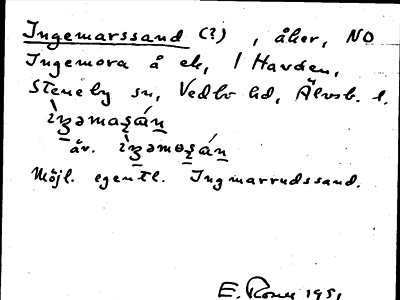 Ingemarssand (?), åker, NO
Ingemora å ek, / Havden,
Steneby sn, Vedbo hd, Älvsb. l.
ìʒəmaʂán̲
äv. ìʒəmɵʂán̲
Möjl. egentl. Ingmarrudssand.
E. 1951